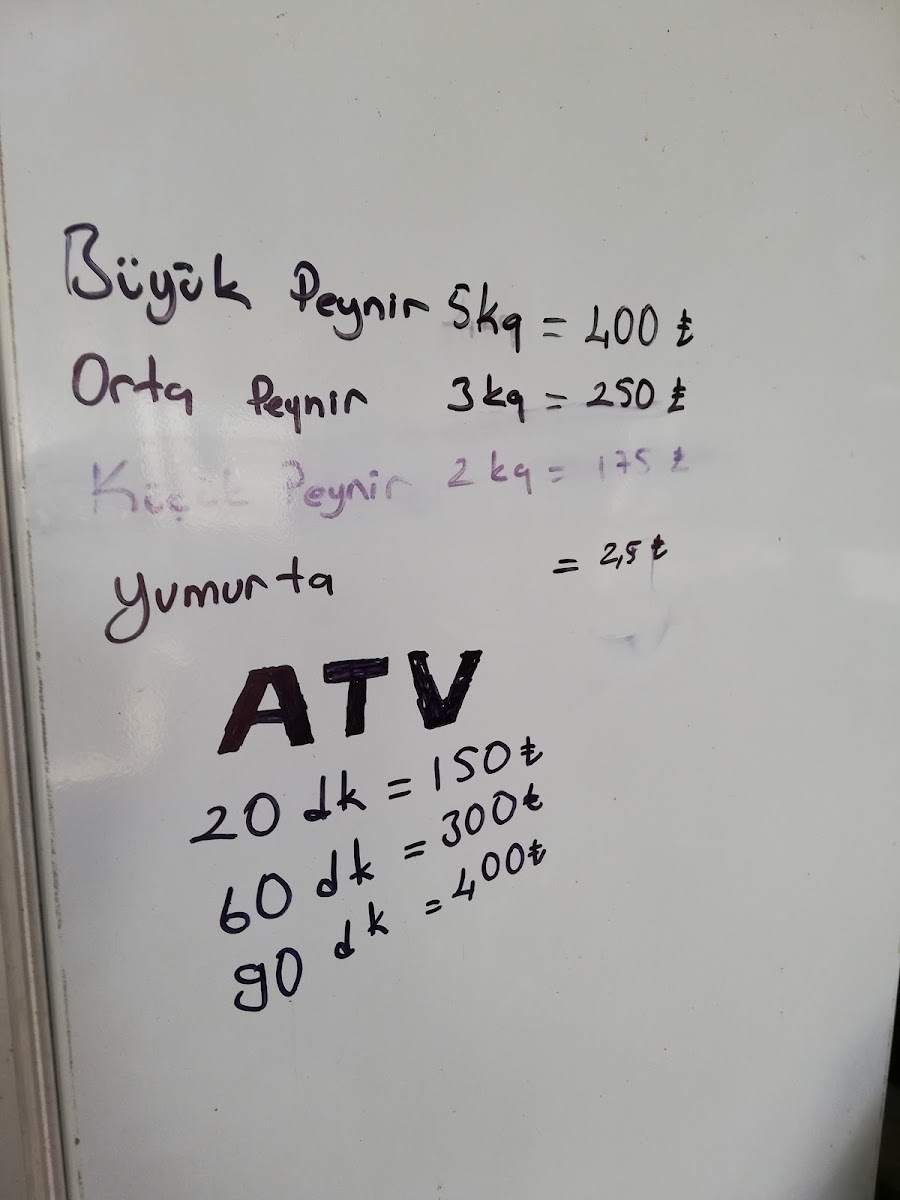 Büyük Peynir 5kg = 400 ₺
Orta Peynir 3kg = 250 ₺
Küçük Peynir 2 kg = 175 ₺
Yumurta = 2,5 ₺
ATV
20 dk = 150 ₺
60 dk = 300 ₺
90 dk = 400 ₺